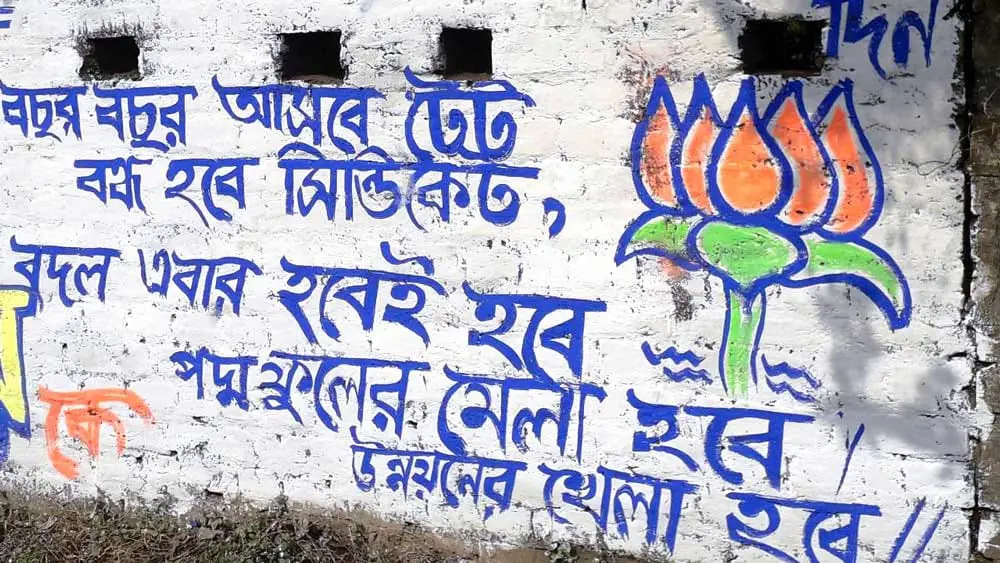 দিন
বছর বছর আসবে টেট
বন্ধ হবে সিন্ডিকেট,
বদল এবার হবেই হবে
পদ্ম ফুলের মেলা হবে
কে
উন্নয়নের খেলা হবে॥